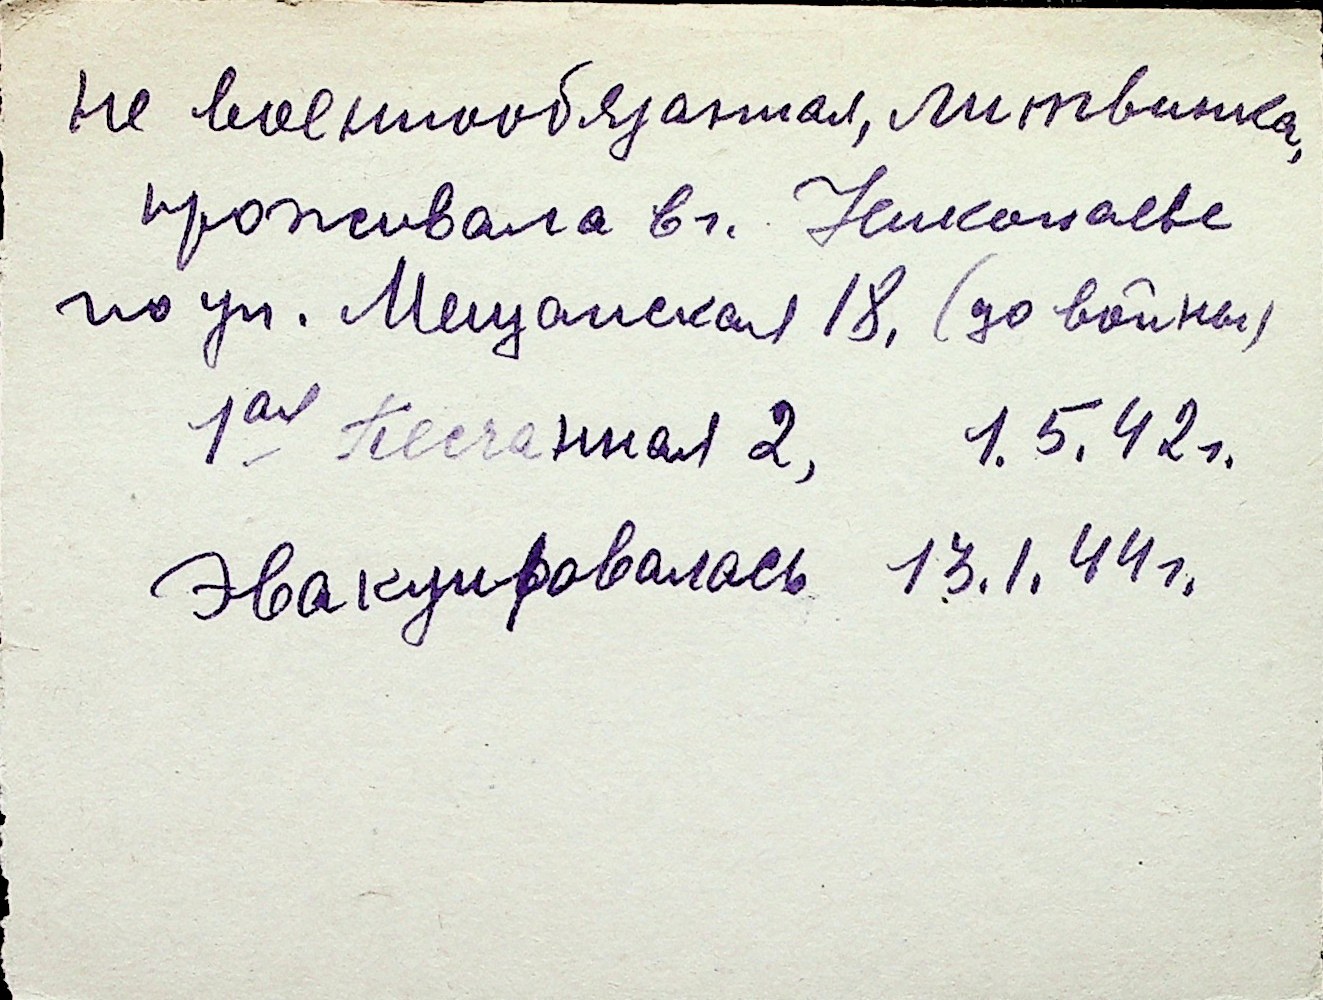 не военнообязанная, литвинка,
проживала в г. Николаеве
по ул. Мещанская 18, (до войны)
1ая Песчанная 2, 1.5.42г.
Эвакуировалась 13.1.44г.